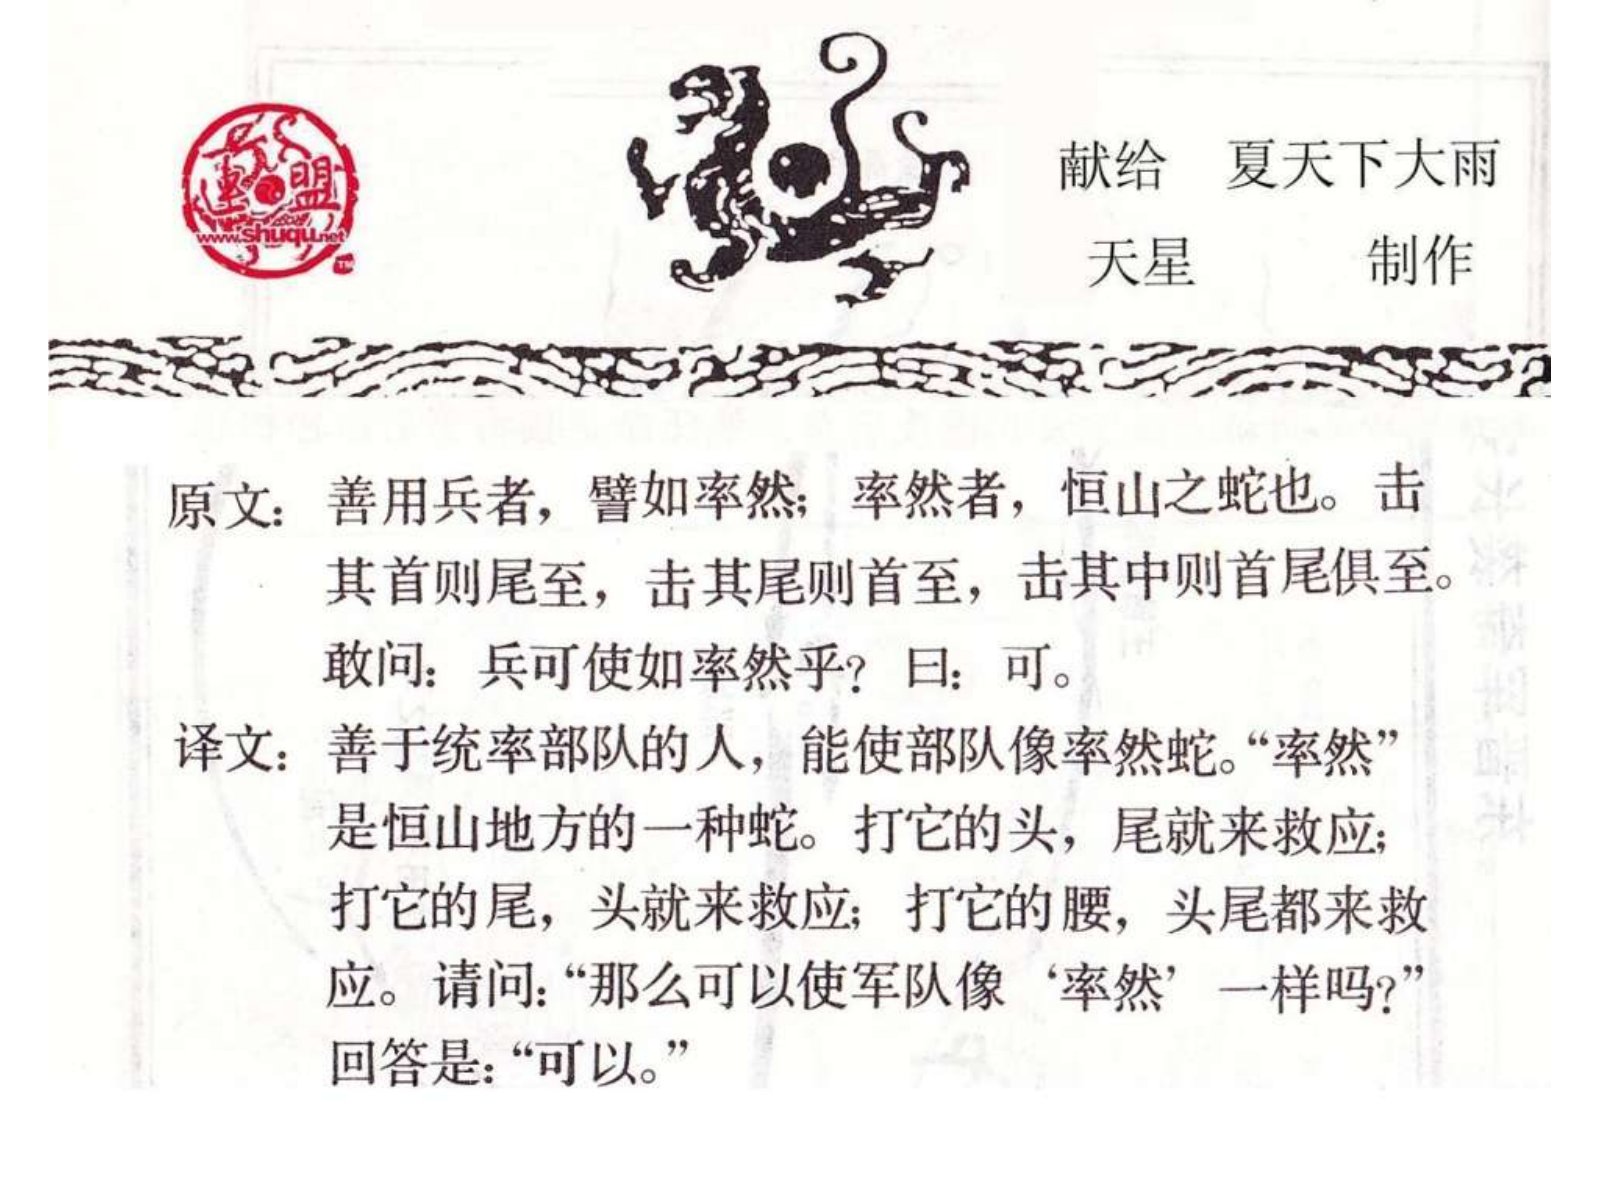 連盟
www.shuqu.net
献给 夏天下大雨
天星 制作
原文：善用兵者，譬如率然；率然者，恒山之蛇也。击
其首则尾至，击其尾则首至，击其中则首尾俱至。
敢问：兵可使如率然乎？曰：可。
译文：善于统率部队的人，能使部队像率然蛇。“率然”
是恒山地方的一种蛇。打它的头，尾就来救应；
打它的尾，头就来救应；打它的腰，头尾都来救
应。请问：“那么可以使军队像‘率然’一样吗？”
回答是：“可以。”